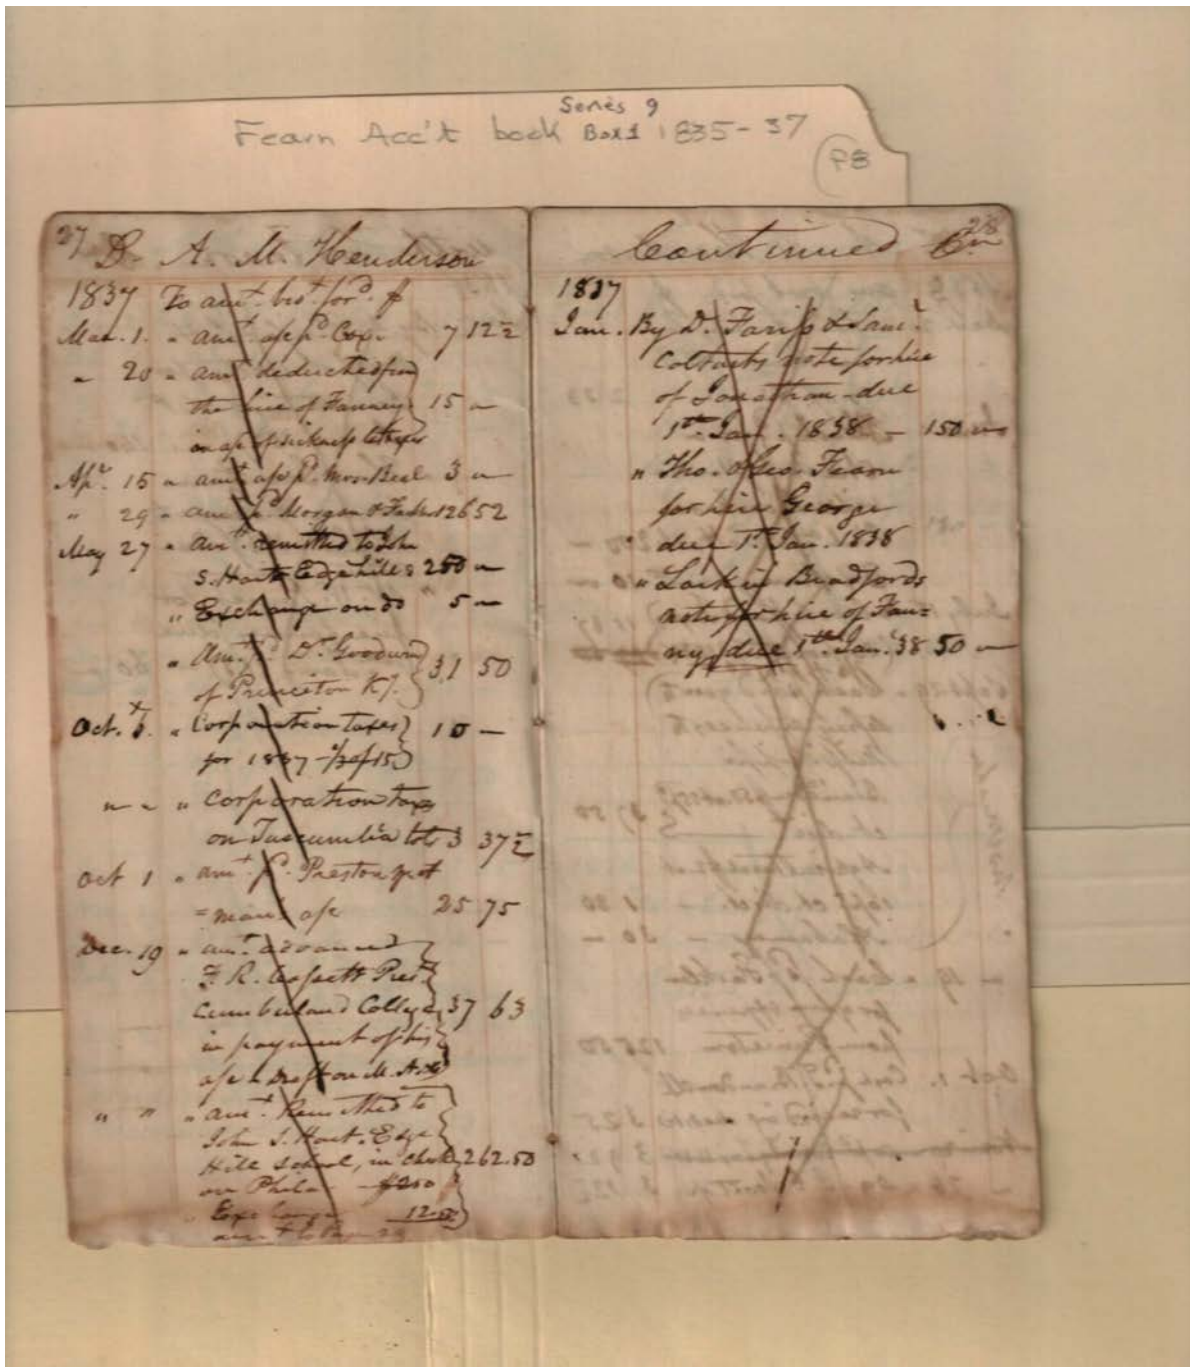 Series 9
Fearn Acc't book Box 1 1835-37
P8
27 Dr. A. M. Henderson
1837 To amt. brot. ford. f
Mar. 1. " amt acpt pd. Cox. 7 12½
" 20 " amt deducted from
the hire of Fanney 15 "
on a/c of sickness
Apr. 15 " amt a/c pd. Mrs. Beal 3 "
" 29 " amt pd. Morgan & 126 52
May 27 " amt. remitted to John
S. Hart Edgehill 250 "
" Exchange on do " 5 "
" Amt. pd. Dr. Goodwin
of Princeton Ky. 31 50
Oct. 6. " Corporation taxes
for 1837 - ⅔ of 15 10 -
" " " Corporation tax
on Tuscumbia lots 3 37½
Oct 1 " amt. pd. Preston
a/c 25 75
Dec. 19 " amt. advanced
F. R. Cossett Prest.
Cumberland College 37 63
in payment of his
a/c & Draft on M. A. H
" " " amt. Remitted to
John S. Hart. Edge
Hill School, in check 262.50
on Phila - $250
" Exchange 12.50
28
Continued Cr.
1837
Jan. By D. Fariss & Saml.
Coltarts note for hire
of Jonathan - due
1st. Jan. 1838 - 150 "
" Tho. & Geo. Fearn
for hire George
due 1st. Jan. 1838
" Larkin Bradfords
note for hire of Fan=
ny, due 1st. Jan. 38 50 "